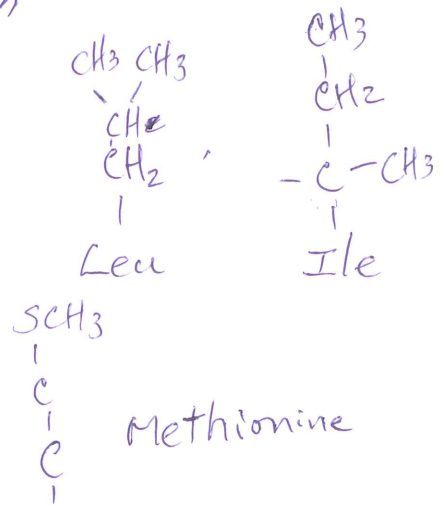 CH3 CH3
CH
CH2
Leu
,
CH3
CH2
- C - CH3
Ile
SCH3
C
C
Methionine